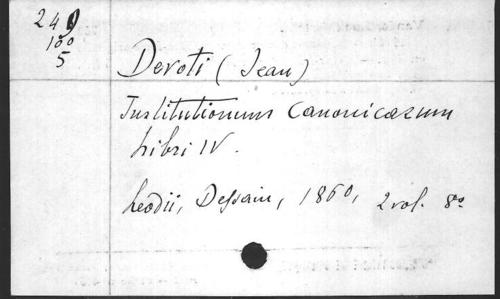 249
100
5
Devoti (Jean)
Institutionum Canonicarum
Libri IV.
Leodii, Dessain, 1860, 2 vol. 8º